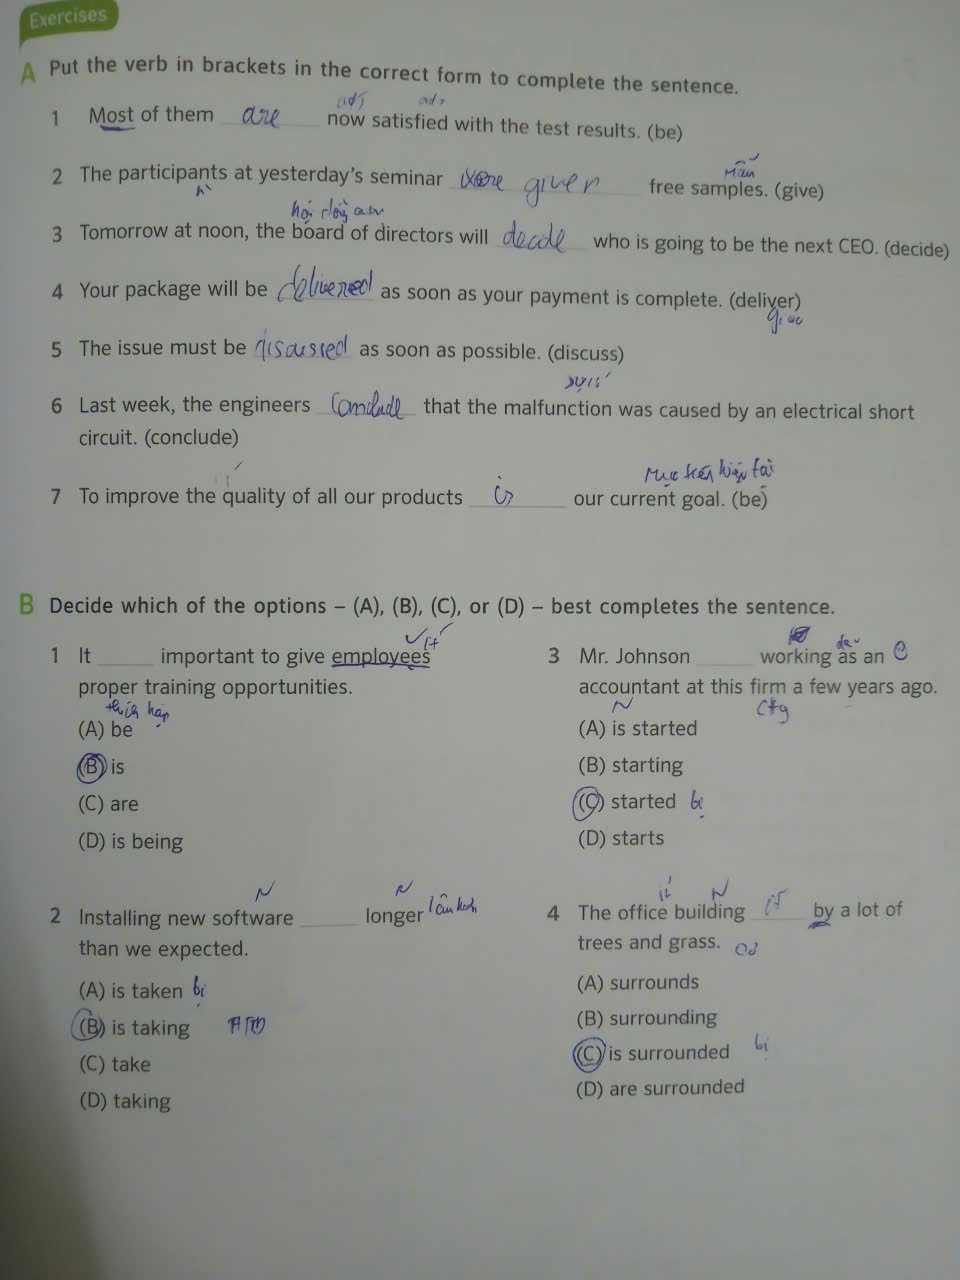 Exercises
A Put the verb in brackets in the correct form to complete the sentence.
adj adj
1 Most of them are now satisfied with the test results. (be)
mẫu
2 The participants at yesterday's seminar were given free samples. (give)
3 Tomorrow at noon, the board of directors will decide who is going to be the next CEO. (decide)
4 Your package will be delivered as soon as your payment is complete. (deliver)
giao
5 The issue must be discussed as soon as possible. (discuss)
6 Last week, the engineers conclude that the malfunction was caused by an electrical short
circuit. (conclude)
7 To improve the quality of all our products is our current goal. (be)
B Decide which of the options – (A), (B), (C), or (D) – best completes the sentence.
1 It ____ important to give employees
proper training opportunities.
thích hợp
(A) be
(B) is
(C) are
(D) is being
N N
2 Installing new software ____ longer
than we expected.
(A) is taken bị
(B) is taking
(C) take
(D) taking
3 Mr. Johnson ____ working as an
accountant at this firm a few years ago.
N cty
(A) is started
(B) starting
(C) started bị
(D) starts
N
4 The office building ____ by a lot of
trees and grass.
(A) surrounds
(B) surrounding
(C) is surrounded bị
(D) are surrounded